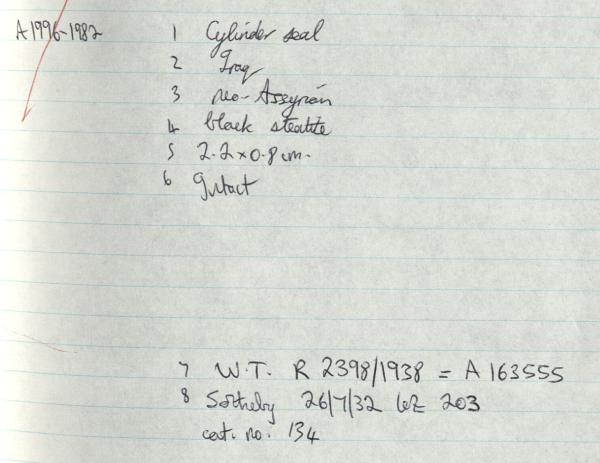 A 1996-1982 1 Cylinder seal
2 Iraq
3 neo-Assyrian
4 black steatite
5 2.2 x 0.8 cm.
6 Intact
7 W.T. R 2398/1938 = A 163555
8 Sotheby 26/7/32 lot 203
cat. no. 134